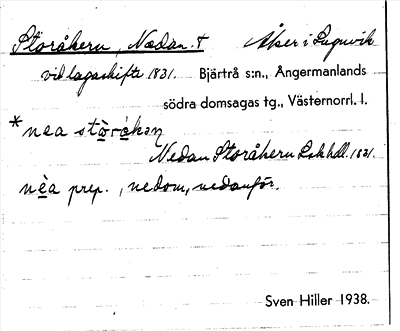 Storåkern, Nedan. † Åker i Lugnvik
vid lagaskifte 1831. Bjärtrå s:n., Ångermanlands
södra domsagas tg., Västernorrl. l.
*nea stòrókən
Nedan Storåkern Lskhdl. 1831.
nèa prep., nedom, nedanför.
Sven Hiller 1938.